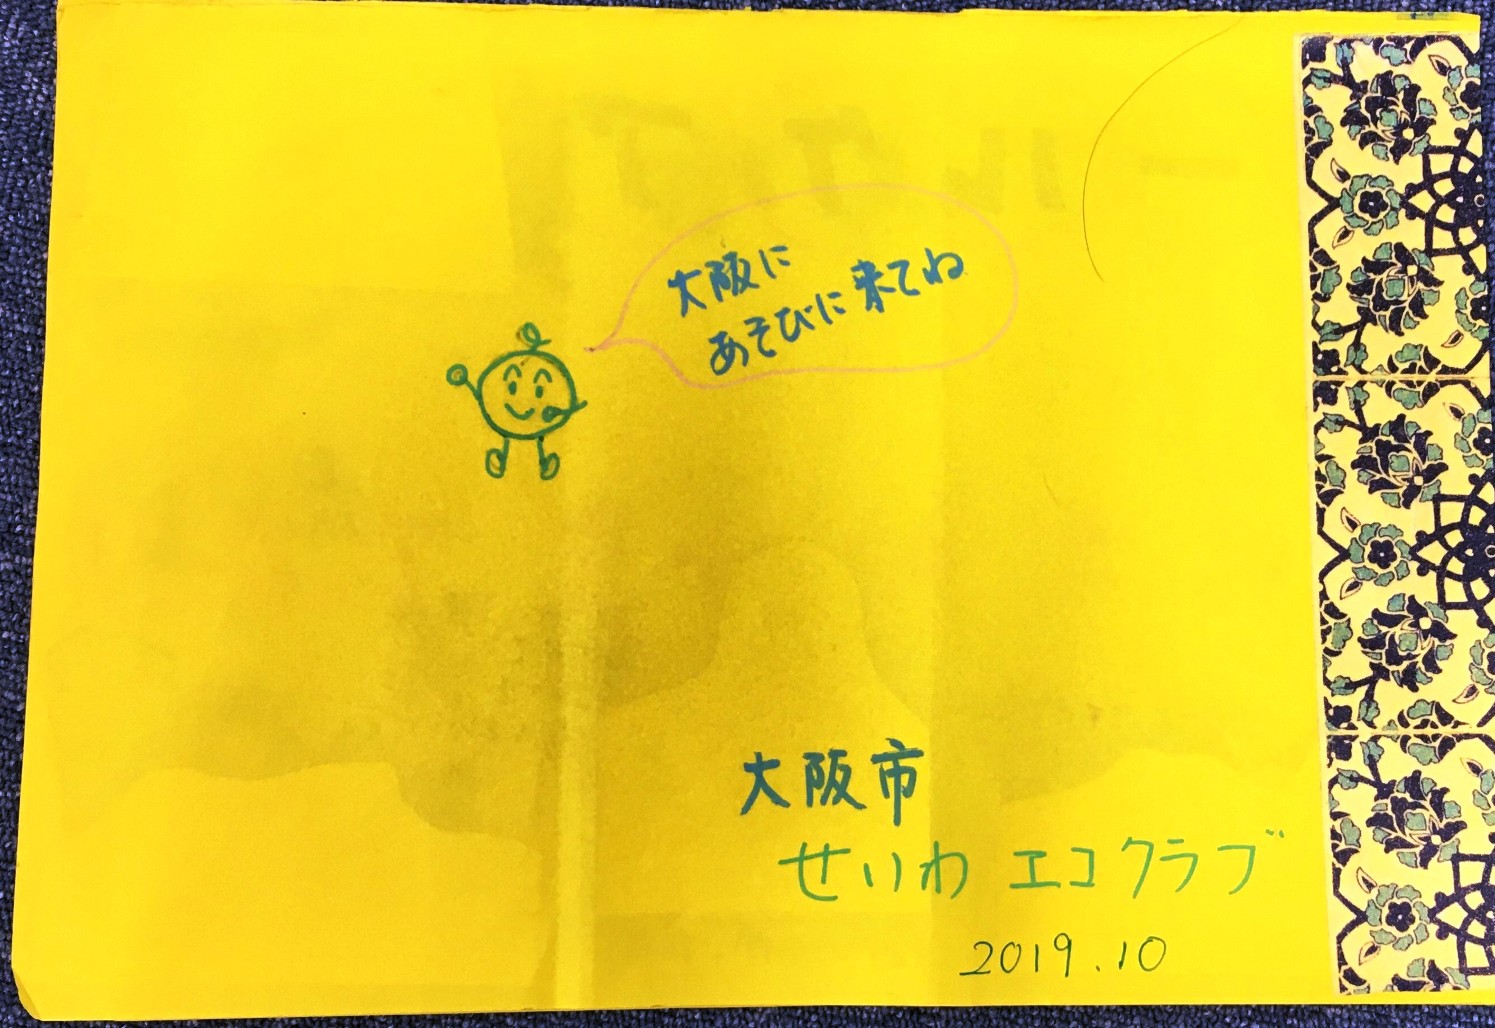 大阪に
あそびに来てね
大阪市
せいわ エコクラブ
2019.10